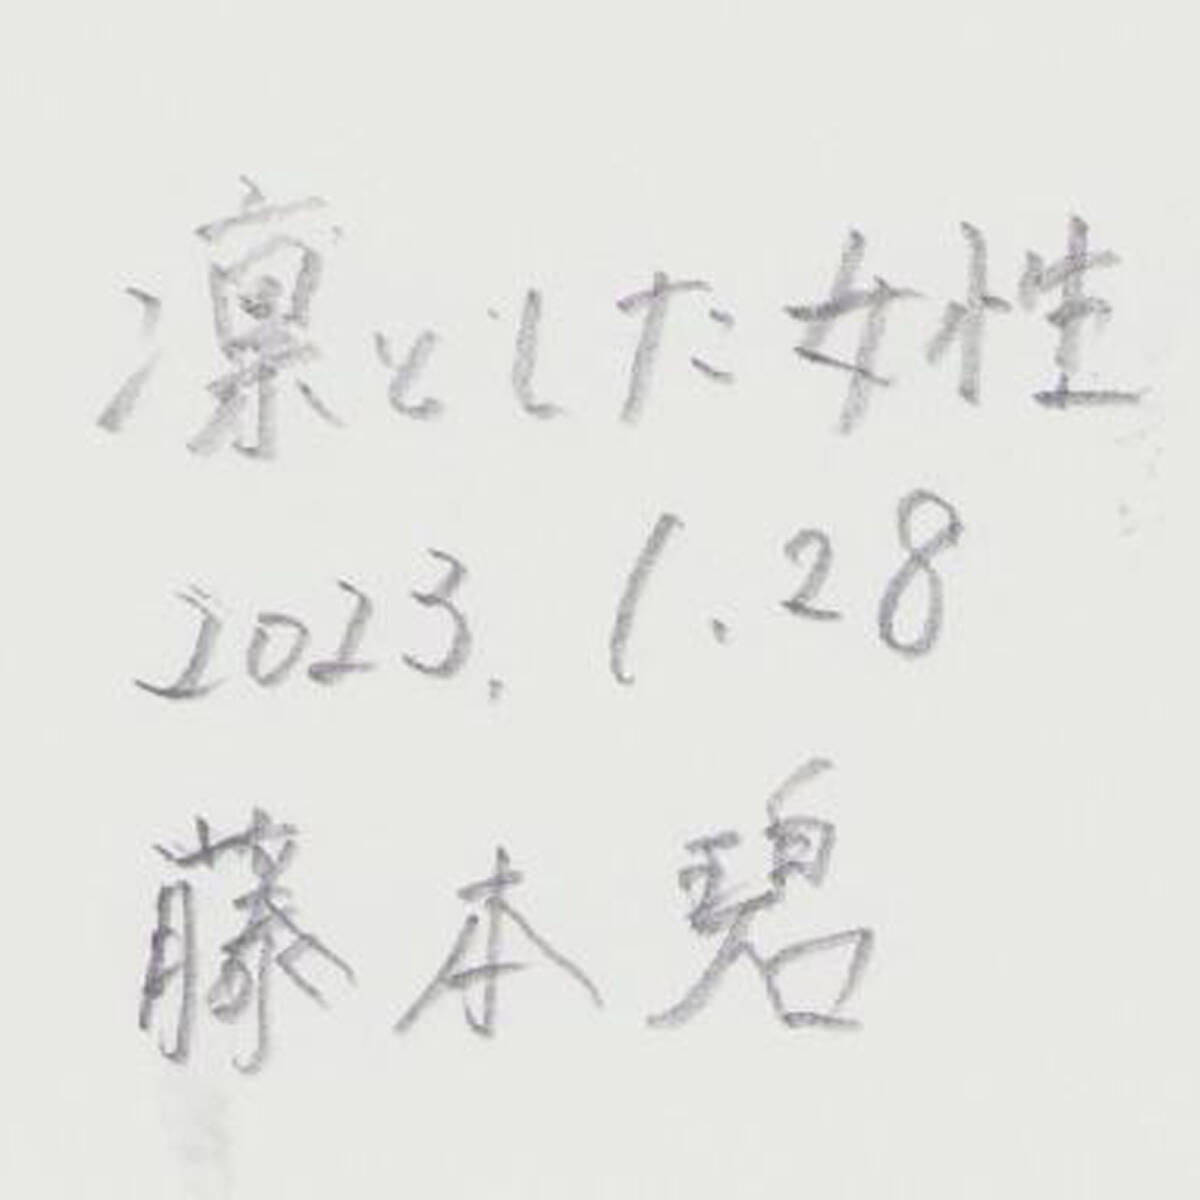 凛とした女性
2023. 1.28
藤本碧